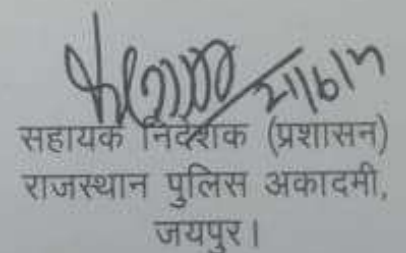 21/6/17
सहायक निदेशक (प्रशासन)
राजस्थान पुलिस अकादमी,
जयपुर।